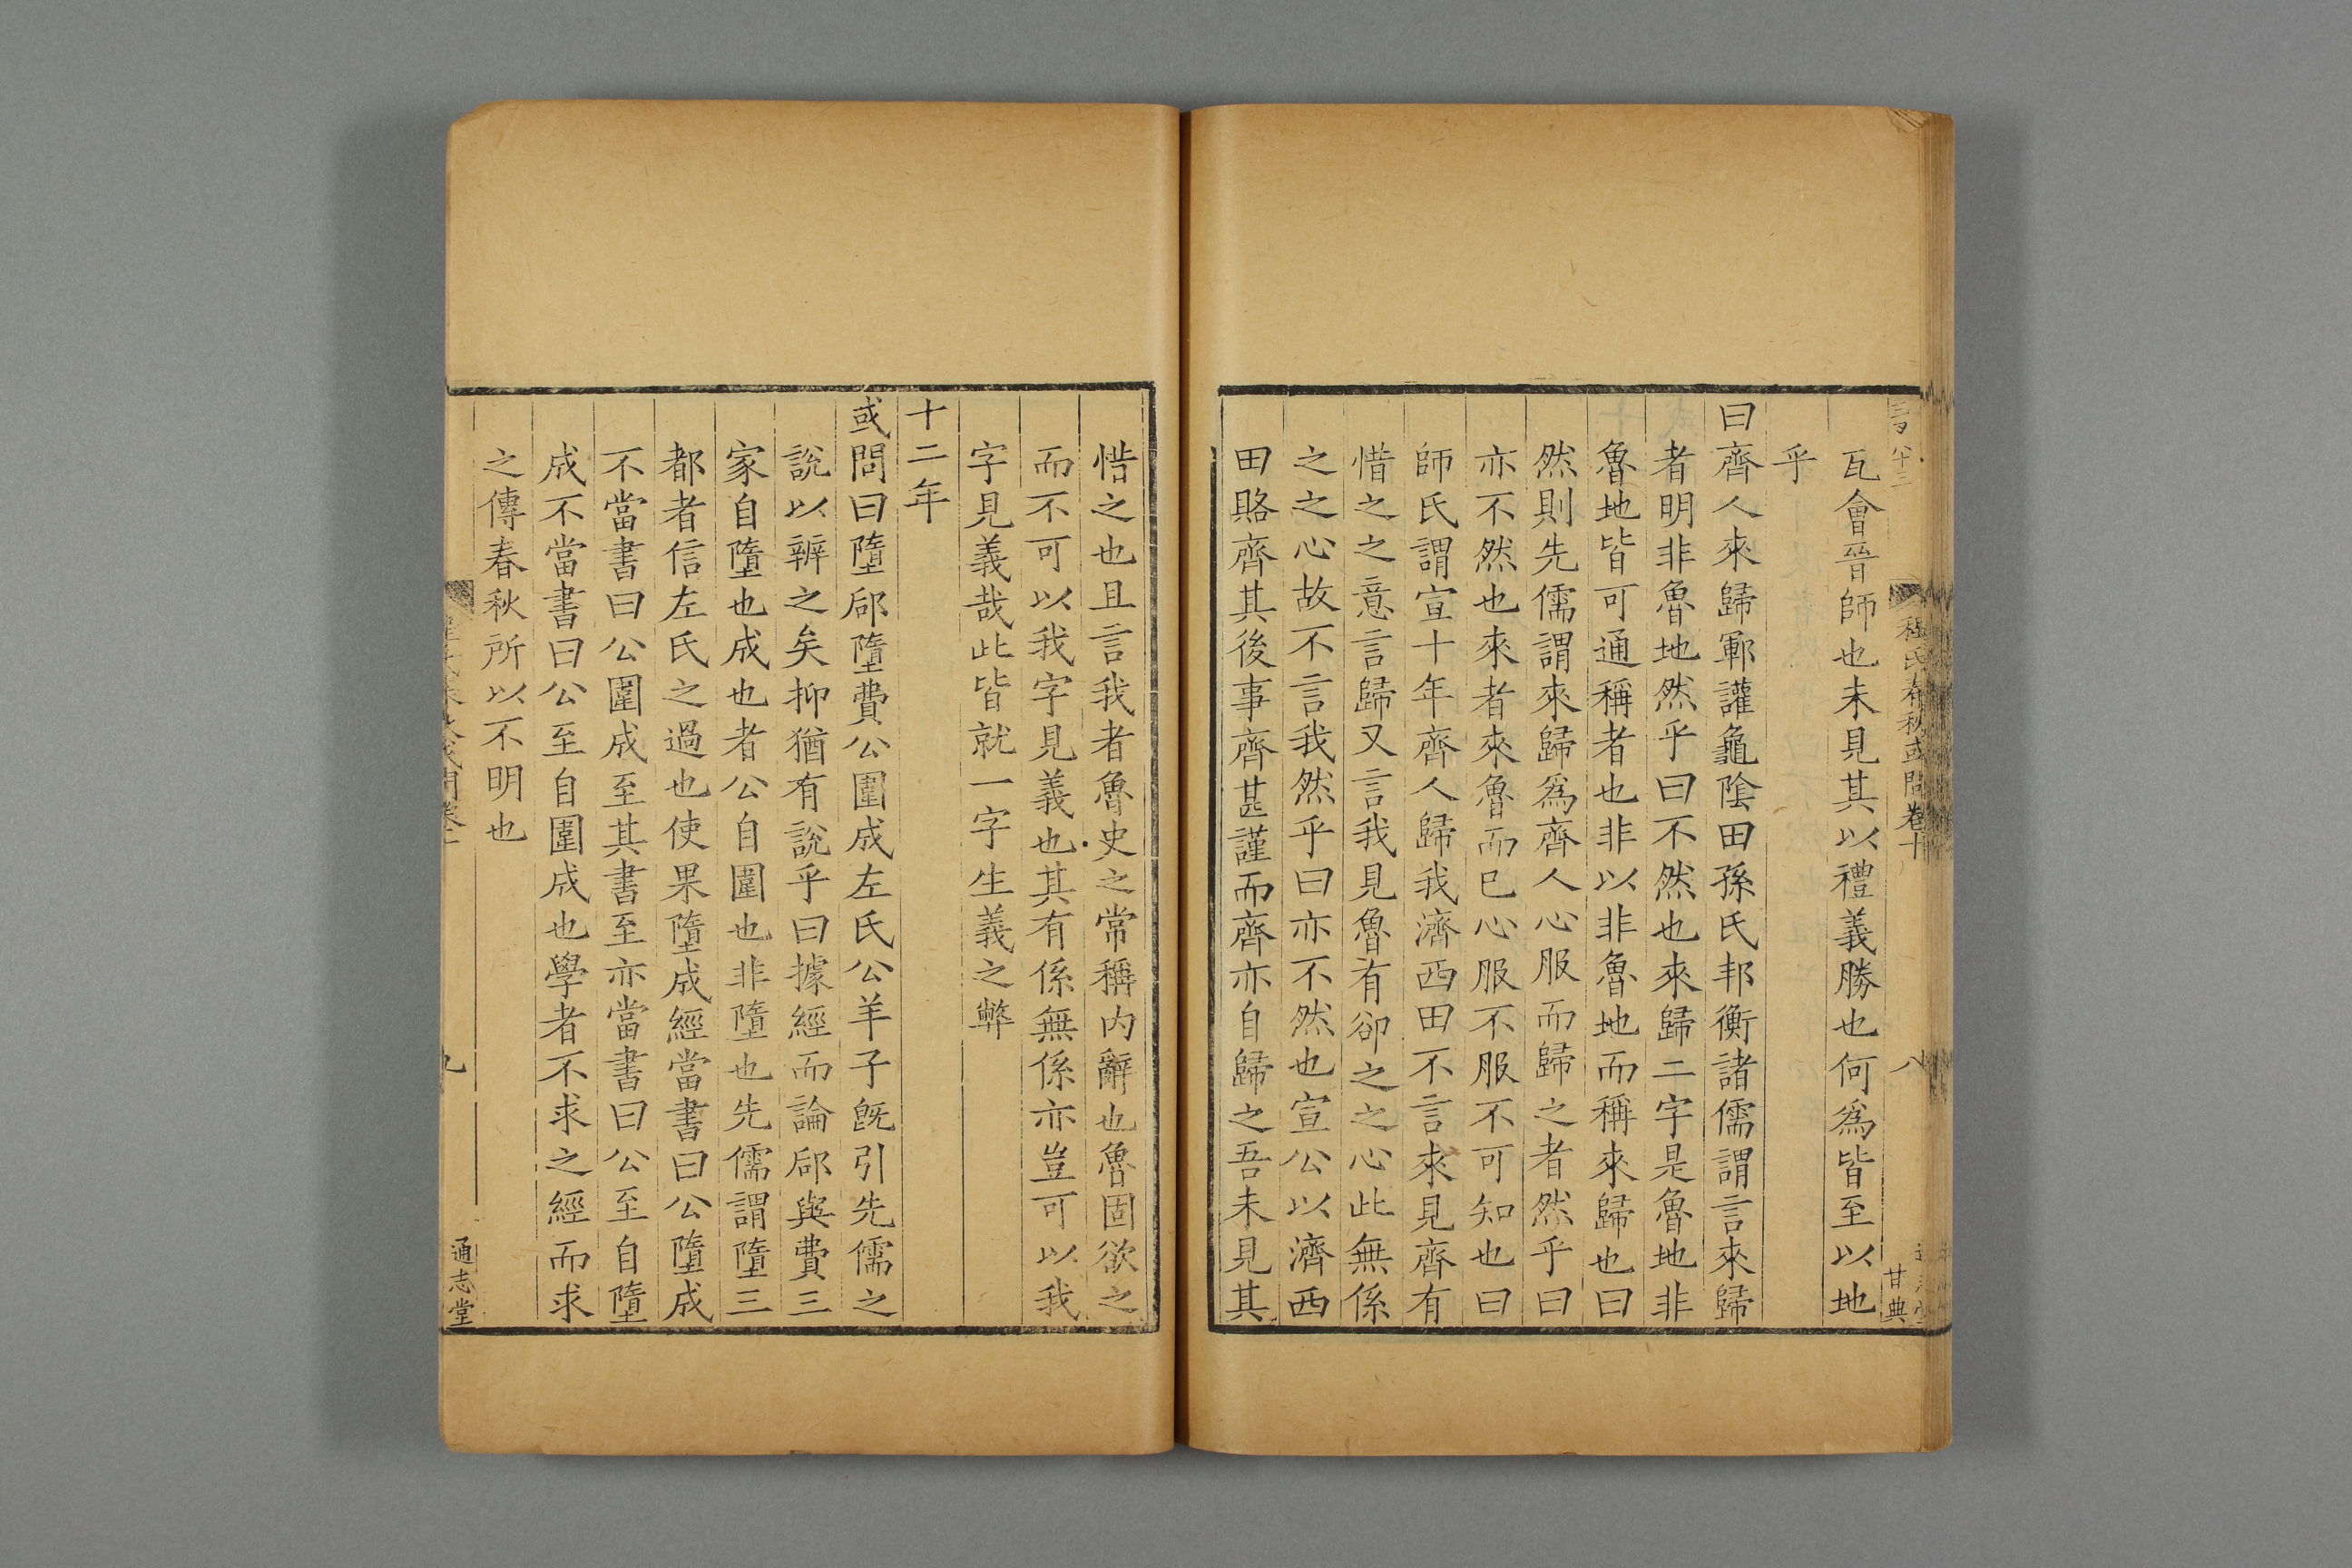 程氏春秋或問卷十
八
甘典
瓦會晉師也未見其以禮義勝也何為皆至以地
乎
曰齊人來歸鄆讙龜陰田孫氏邦衡諸儒謂言來歸
者明非魯地然乎曰不然也來歸二字是魯地非
魯地皆可通稱者也非以非魯地而稱來歸也曰
然則先儒謂來歸為齊人心服而歸之者然乎曰
亦不然也來者來魯而已心服不服不可知也曰
師氏謂宣十年齊人歸我濟西田不言來見齊有
惜之之意言歸又言我見魯有卻之之心此無係
之之心故不言我然乎曰亦不然也宣公以濟西
田賂齊其後事齊甚謹而齊亦自歸之吾未見其
惜之也且言我者魯史之常稱內辭也魯固欲之
而不可以我字見義也其有係無係亦豈可以我
字見義哉此皆就一字生義之弊
十二年
或問曰墮郈墮費公圍成左氏公羊子旣引先儒之
說以辨之矣抑猶有說乎曰據經而論郈與費三
家自墮也成也者公自圍也非墮也先儒謂墮三
都者信左氏之過也使果墮成經當書曰公墮成
不當書曰公圍成至其書至亦當書曰公至自墮
成不當書曰公至自圍成也學者不求之經而求
之傳春秋所以不明也
九
通志堂